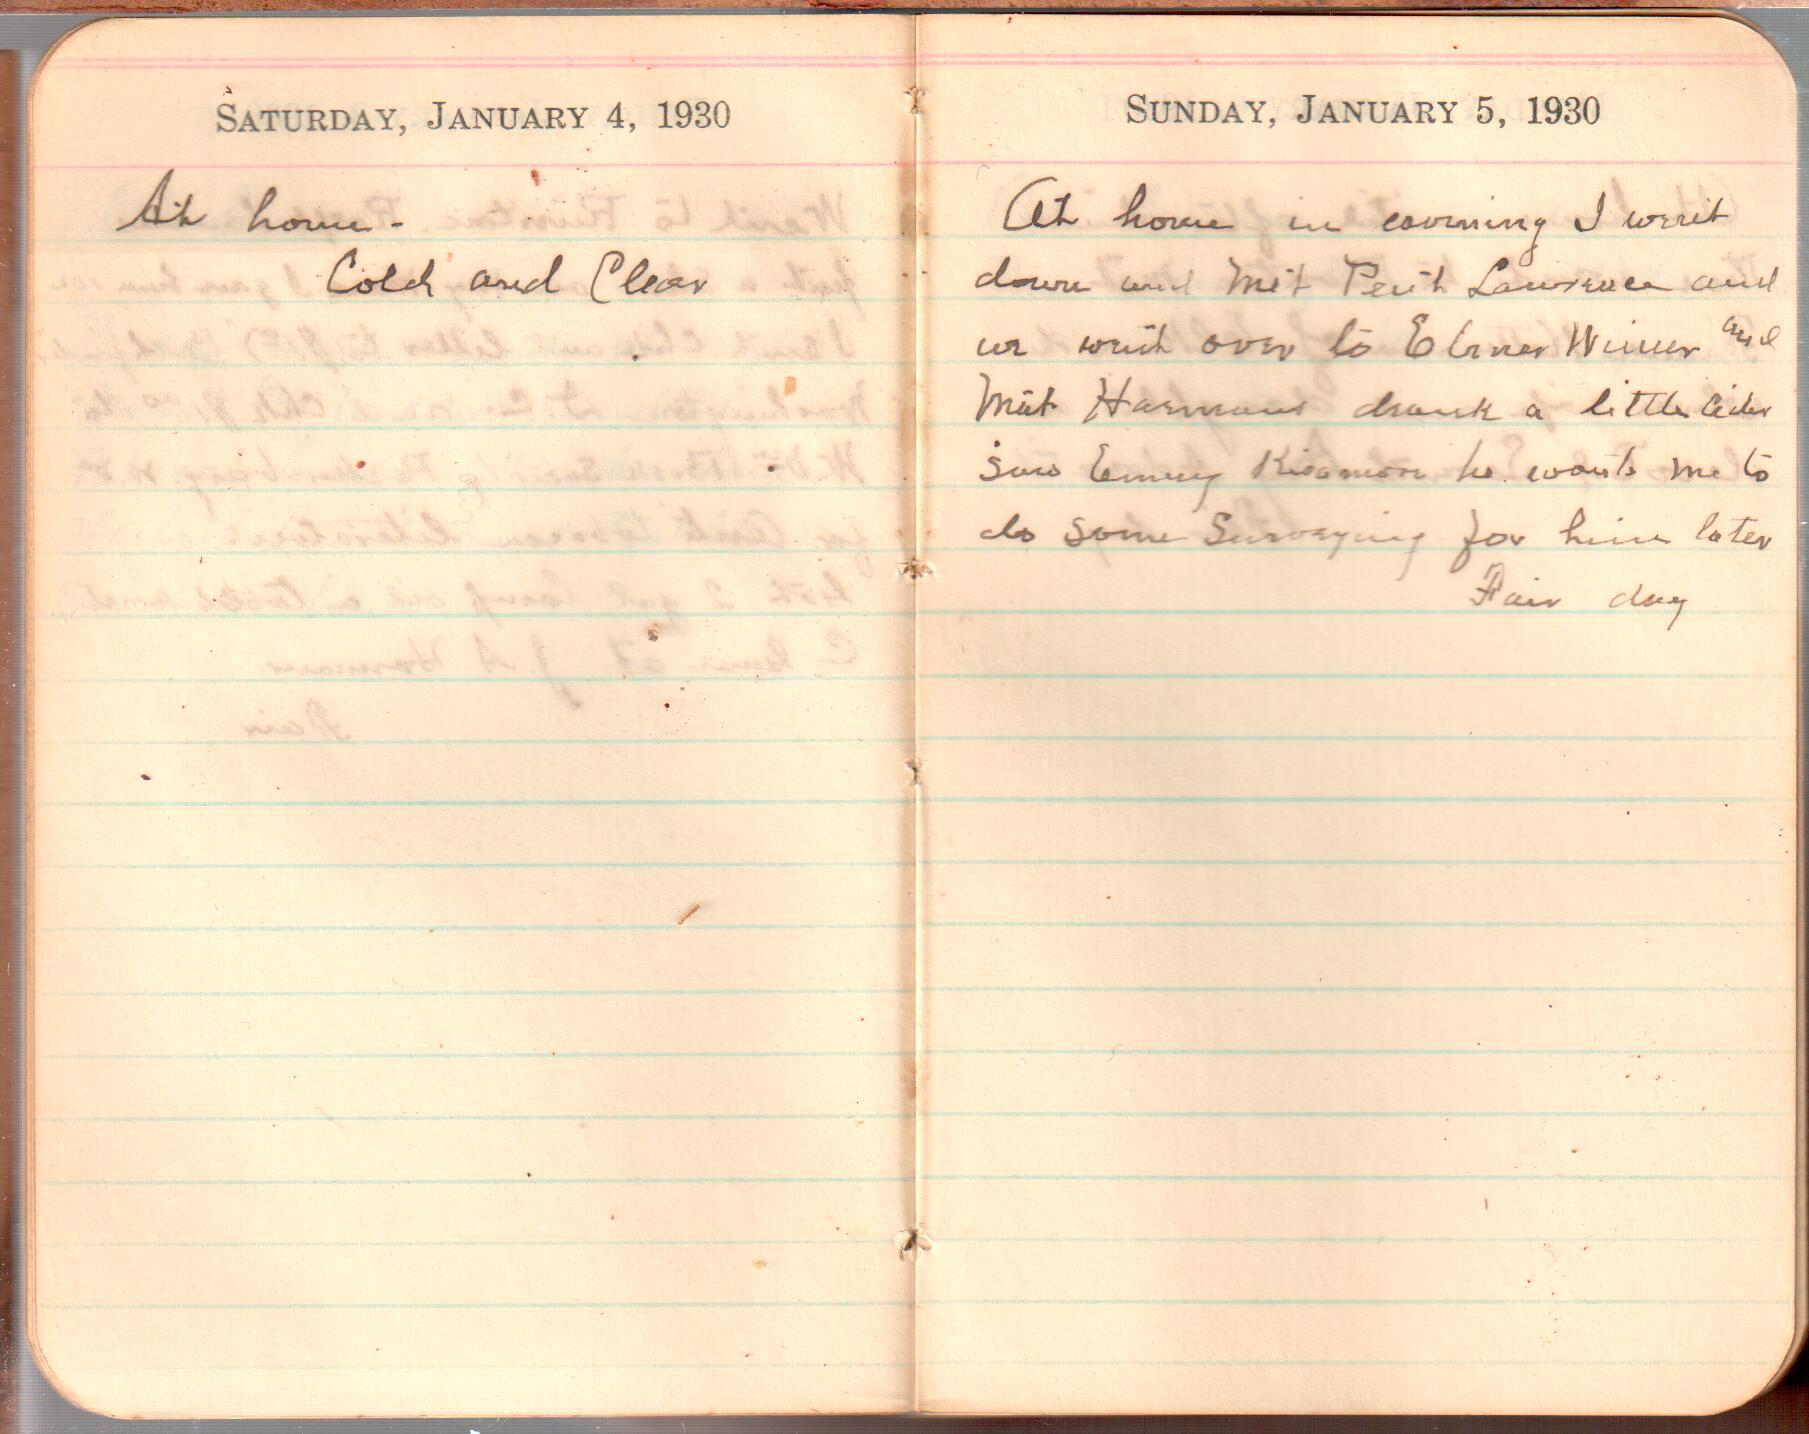 SATURDAY, JANUARY 4, 1930
At home -
Cold and Clear
SUNDAY, JANUARY 5, 1930
At home in evening I went
down and Met Lawrence and
we went over to Elmer and
Met Harmans drank a little Cider
Saw Emory Kisamore he wants me to
do some Surveying for him later
Fair day